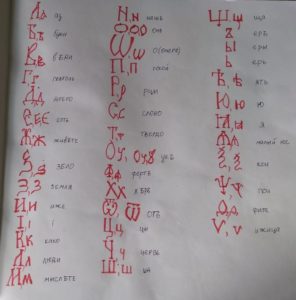 Аа аз
Бб буки
Вв веди
Гг глаголь
Дд добро
Єєє есть
Жж живете
Ѕѕ зело
Зз земля
Ии иже
Іі і
Кк како
Лл люди
Мм мыслѣте
Нн нашъ
Оо он
Ѡѡ О(омега)
Пп покой
Рр рци
Сс слово
Тт твердо
Оу, оу, ꙋ укъ
Фф фертъ
Хх хѣръ
Ѿѿ отъ
Цц цы
Чч червь
Шш ша
Щщ ща
ъ еръ
ы еры
ь ерь
Ѣѣ ять
Юю ю
Ꙗꙗ я
Ѧѧ малый юс
Ѯѯ кси
Ѱѱ пси
Ѳѳ фита
Ѵѵ ижица